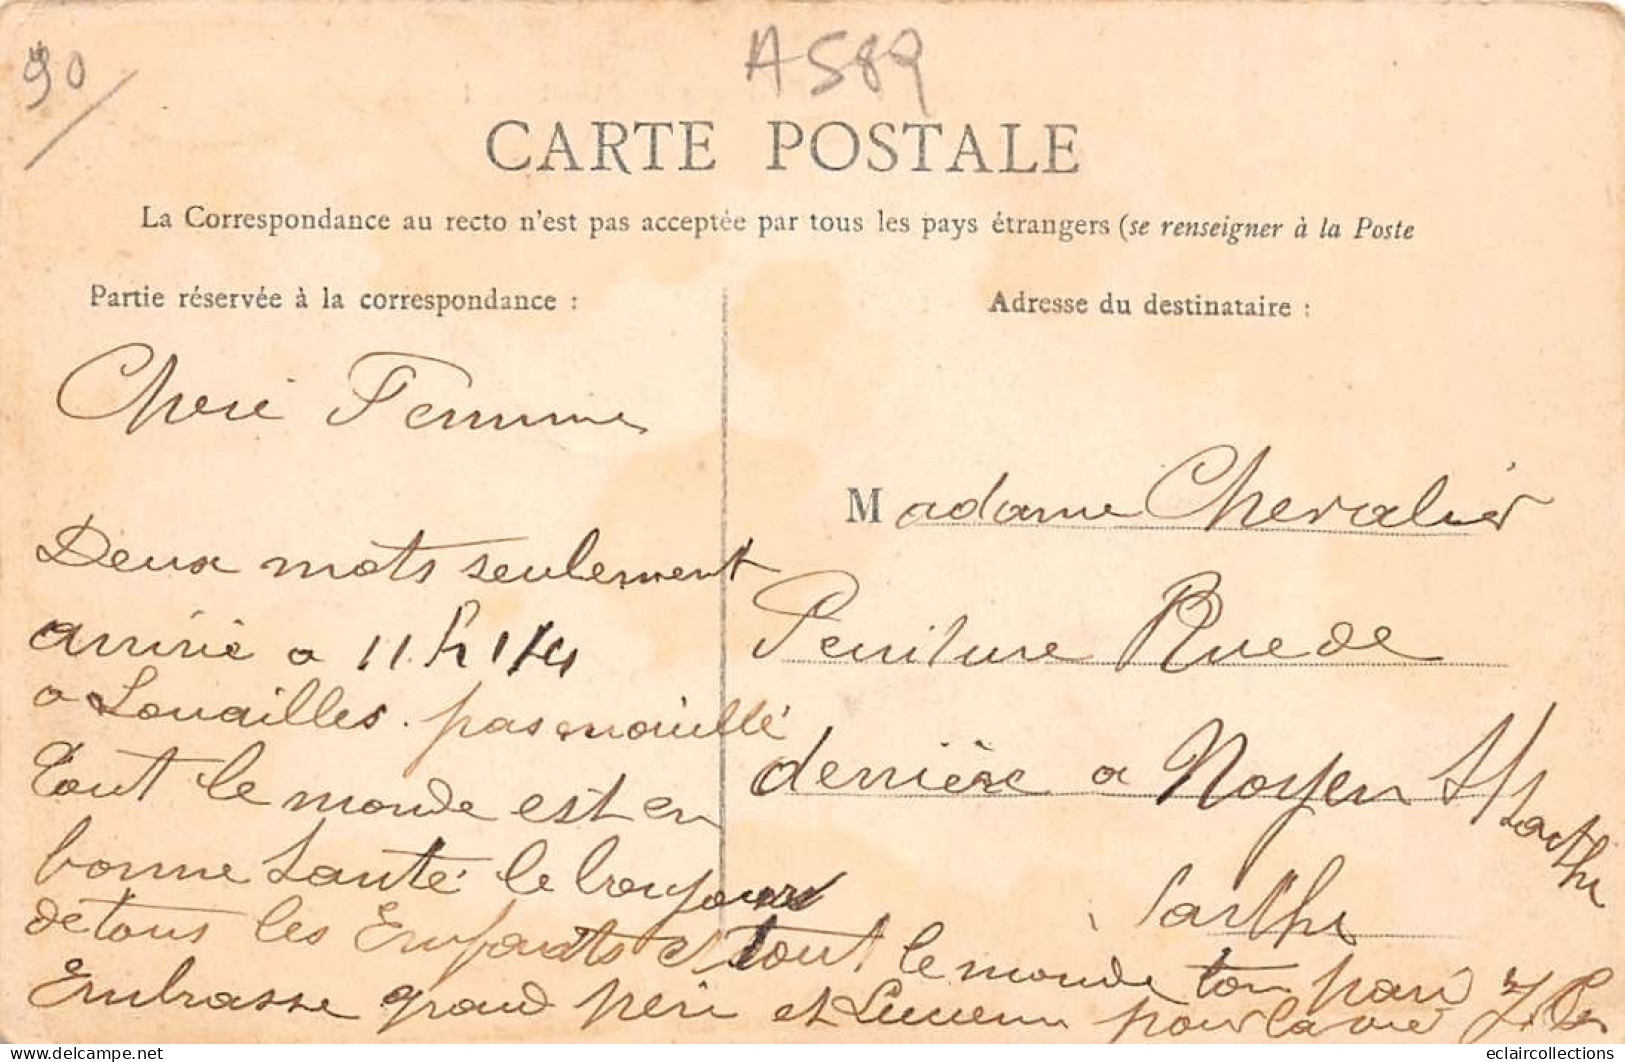 90
A589
CARTE POSTALE
La Correspondance au recto n'est pas acceptée par tous les pays étrangers (se renseigner à la Poste
Partie réservée à la correspondance :
Cheré Femme
Deux mots seulement
arrivé a 11 h 1/4
a Louailles. pas mouillé
tout le monde est en
bonne Santé le
de tous les Enfants et tout le monde ton
Embrasse grand père et Lucien pour la vie
Adresse du destinataire :
Madame Chevalier
Peniture Rue de
derrière a Noyen S/Sarthe
Sarthe
eclaircollections